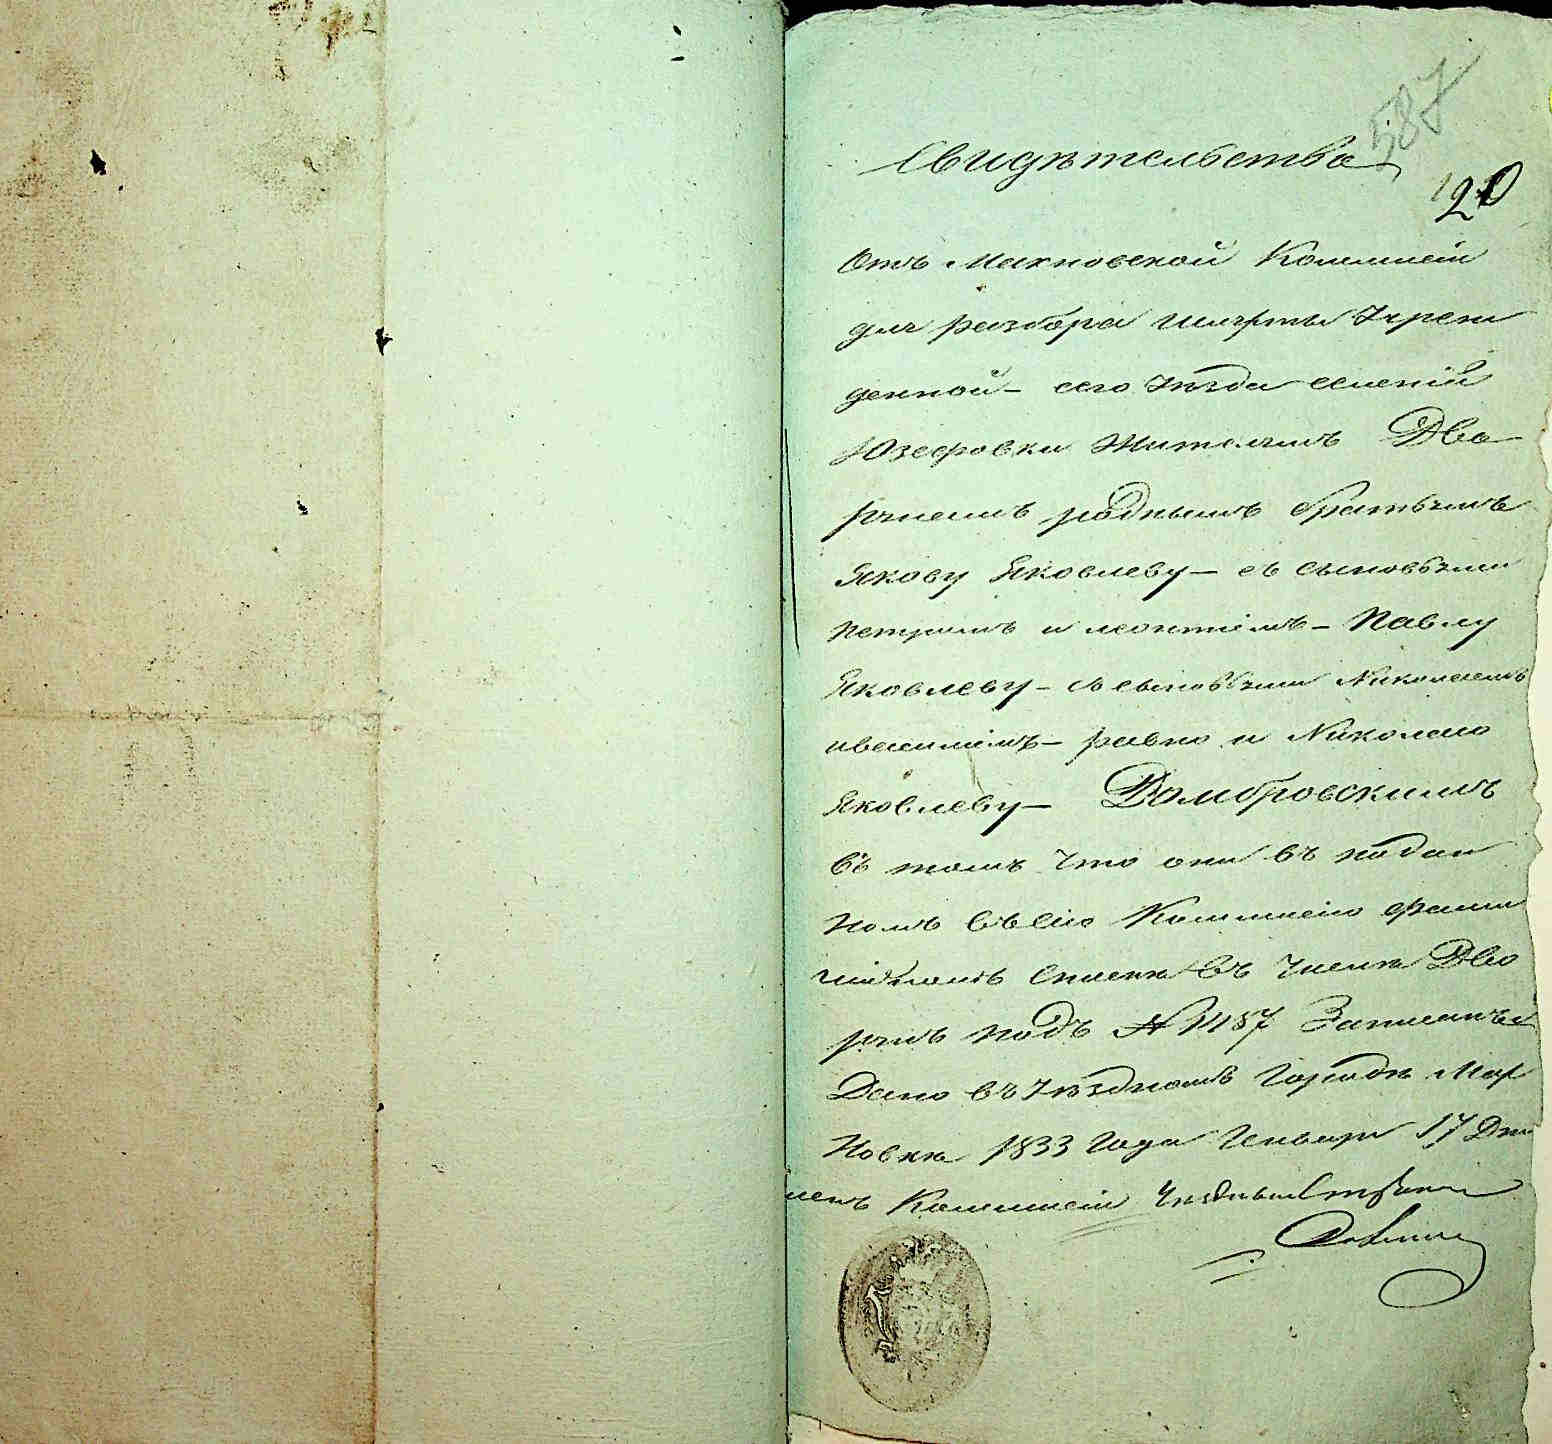 587
Свидѣтельство
120
Отъ Махновской Коммисіи
для разбора шляхты Учреж
денной – сего уѣзда селеній
Юзефовки Жителямъ Дво
рянамъ роднымъ братьямъ
Якову Яковлеву – съ сыновьями
петромъ и леонтіемъ – Павлу
Яковлеву – съ сыновьями Николаемъ
ивасиліемъ – равно и Николаю
Яковлеву – Домбровскимъ
въ томъ что они въ подан
номъ въ сію Коммисію фами
лійномъ спискѣ въ числѣ Дво
рянъ подъ № 1457 Записаны
Дано въ Уѣздномъ Городѣ Мах
новкѣ 1833 Года Генваря 17 Дня
Членъ Коммисіи Уѣздный Стряпчій